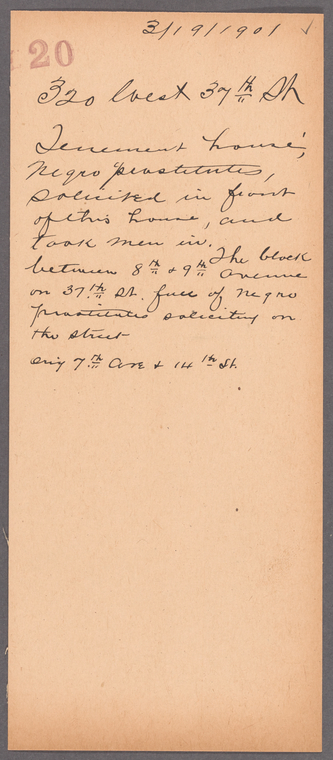 3/19/1901
20
320 West 37th St
Tenement house,
Negro prostitutes,
solicited in front
of this house, and
took men in.
The block
between 8th & 9th Avenue
on 37th St. full of Negro
prostitutes soliciting on
the street
7th Ave & 14th St.